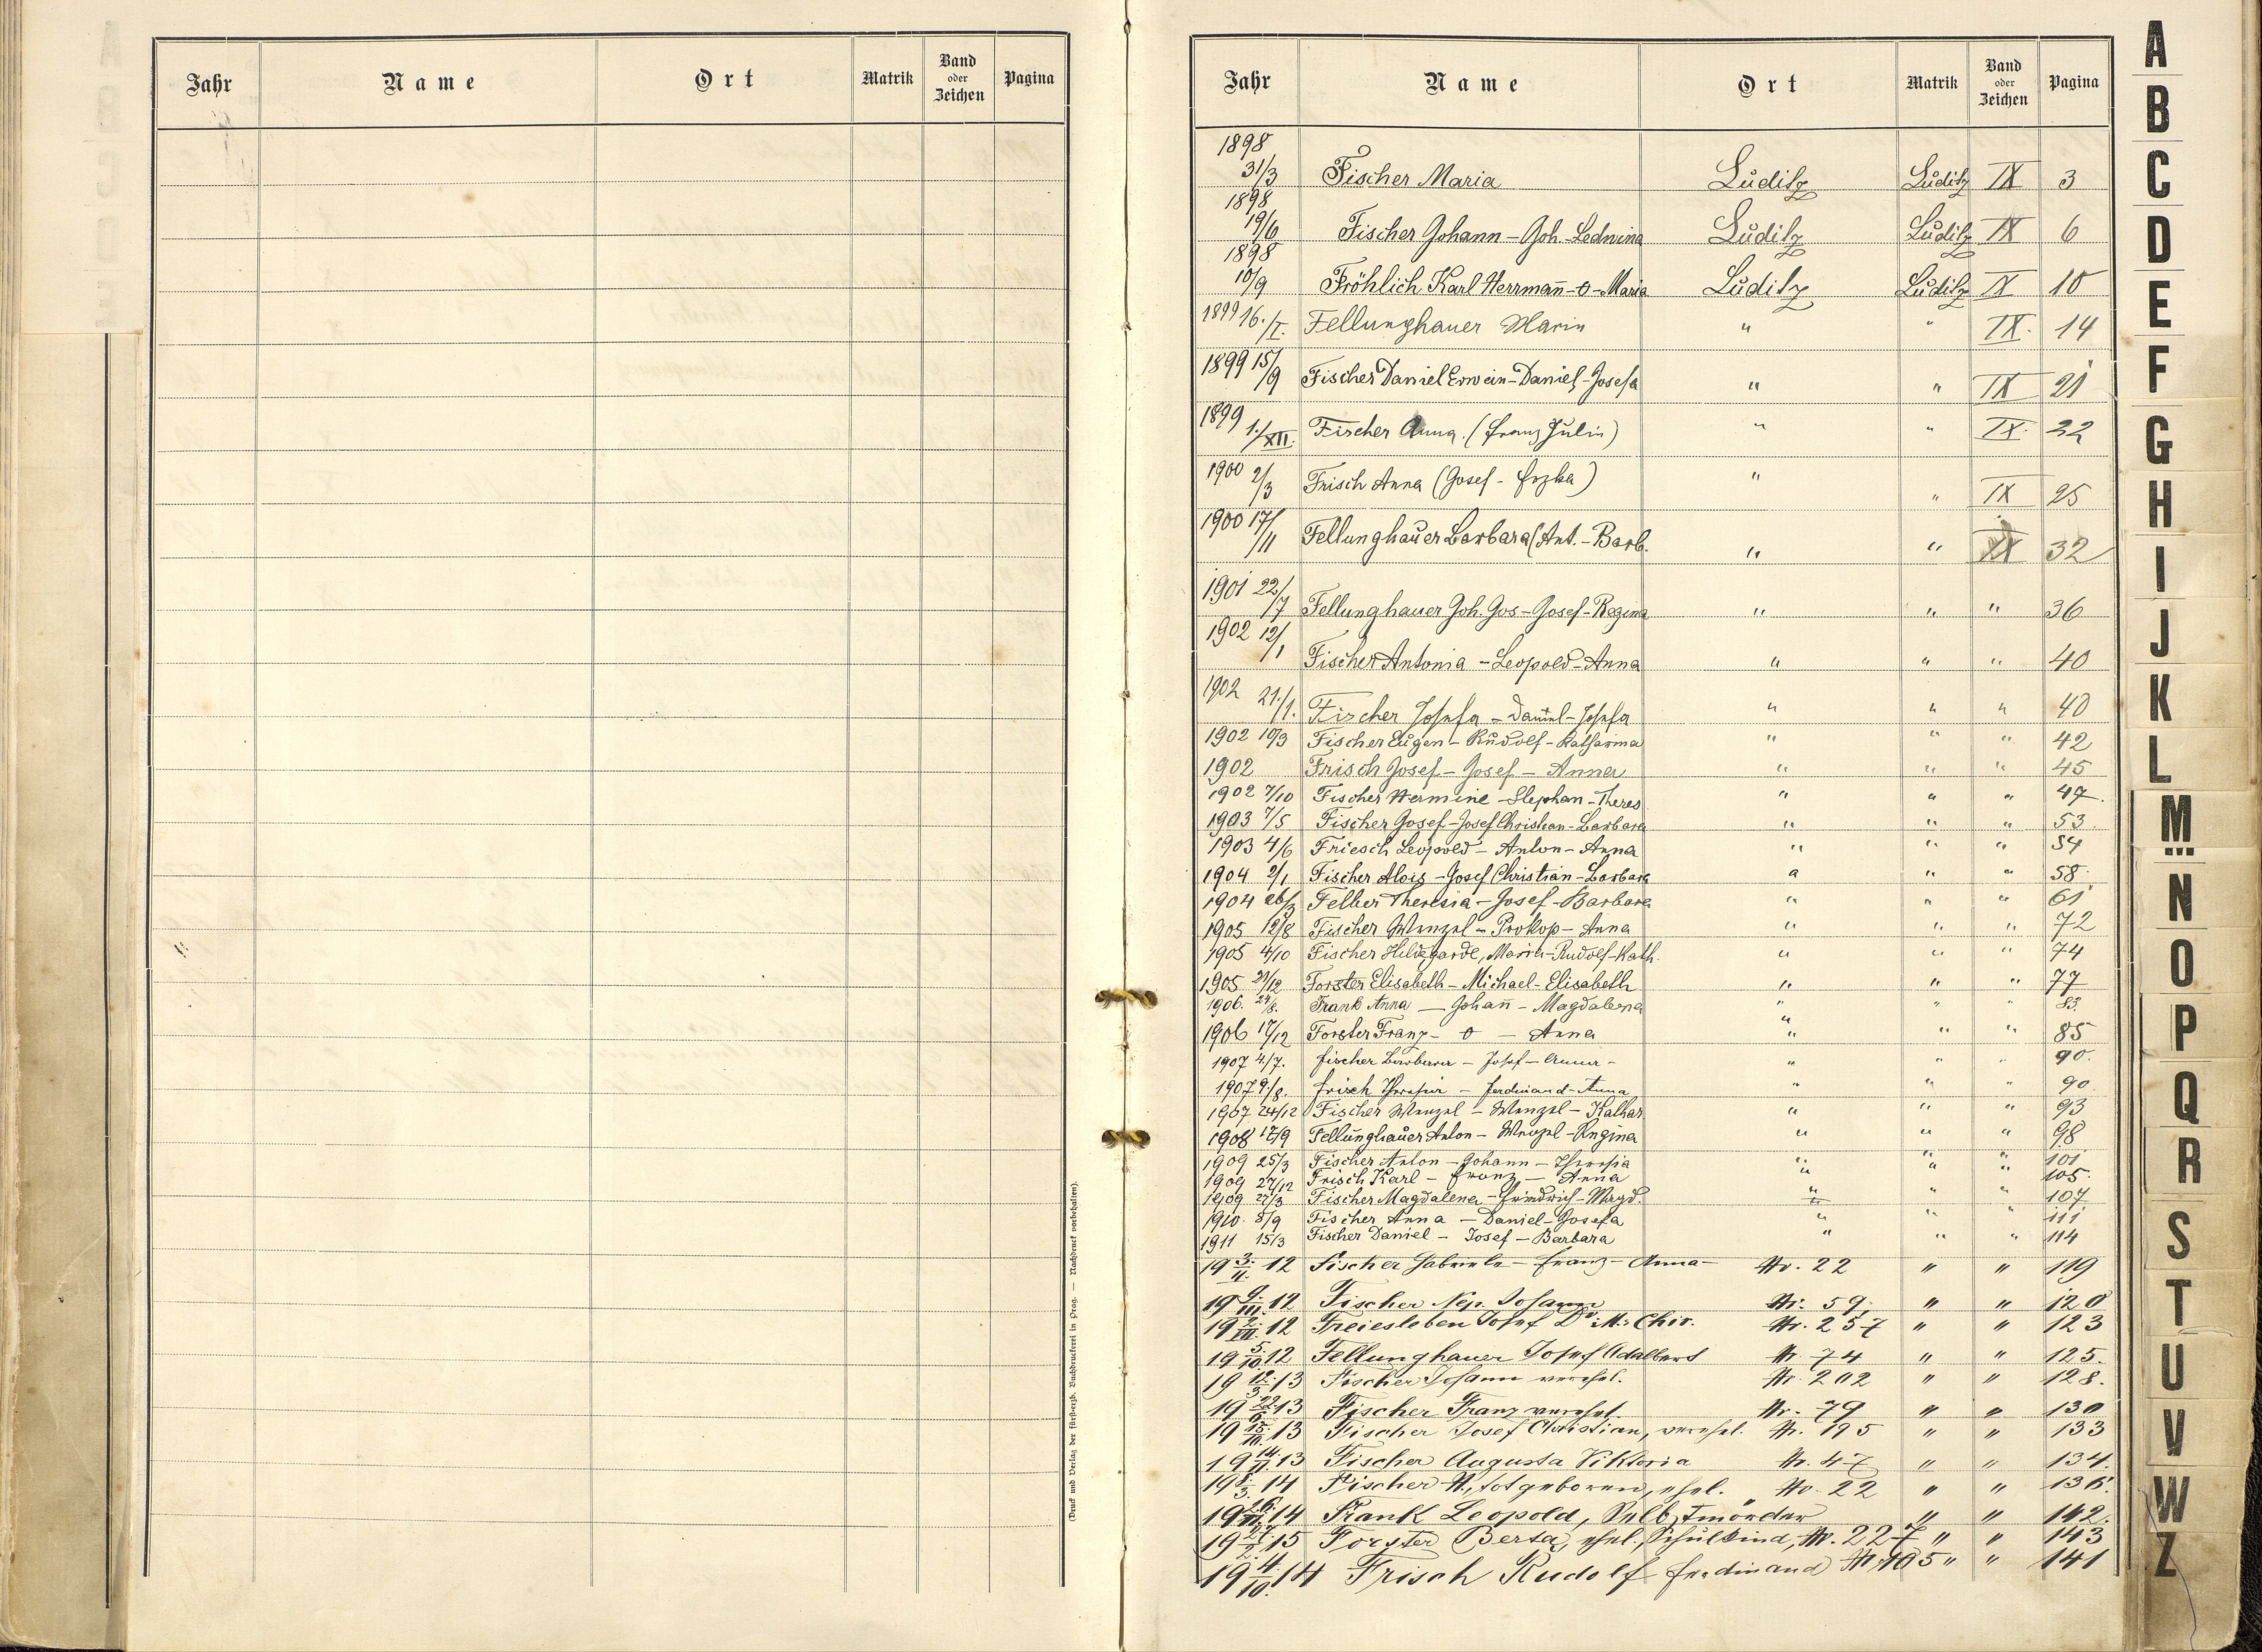 Jahr Name Ort Matrik Band oder Zeichen Pagina
(Druck und Verlag der fürst-erzb. Buchdruckerei in Prag. — Nachdruck vorbehalten).
Jahr Name Ort Matrik Band oder Zeichen Pagina
1898
31/3 Fischer Maria Luditz Luditz IX 3
1898
19/6 Fischer Johann - Joh. - Ledwina Luditz Luditz IX 6
1898
10/9 Fröhlich Karl Herrmañ - o - Maria Luditz Luditz IX 10
1899 16./I. Fellunghauer Maria " " IX. 14
1899 15/9 Fischer Daniel Erwein - Daniel - Josefa " " IX 21
1899 1./XII. Fischer Anna. (Franz Julia) " " IX. 22
1900 2/3 Frisch Anna (Josef - ) " " IX 25
1900 17/11 Fellunghauer Barbara (Ant. - Barb. " " IX 32
1901 22/7 Fellunghauer Joh. Jos - Josef - Regina " " " 36
1902 12/1 Fischer Antonia - Leopold - Anna " " " 40
1902 21./1. Fischer Josefa - Daniel - Josefa " " " 40
1902 10/3 Fischer Eugen - Rudolf - Katharina " " " 42
1902 Frisch Josef - Josef - Anna " " " 45
1902 7/10 Fischer Hermine - Stephan - Theres " " " 47.
1903 7/5 Fischer Josef - Josef Christian - Barbara " " " 53
1903 4/6 Friesch Leopold - Anton - Anna " " " 54
1904 2/1 Fischer Alois - Josef Christian - Barbara " " " 58
1904 26/3 Felber Theresia - Josef - Barbara " " " 61
1905 12/8 Fischer Wenzel - Prokop - Anna " " " 72
1905 4/10 Fischer Hildegarde, Maria - Rudolf - Kath. " " " 74
1905 /12 Forster Elisabeth - Michael - Elisabeth " " " 77
1906. 24/8. Frank Anna — Johañ - Magdalena " " " 83.
1906 17/12 Forster Franz - o - Anna " " " 85
1907 4./7. Fischer Barbara - Josef - Anna - " " " 90.
1907 9./8. Frisch Theresia - Ferdinand - Anna " " " 90
1907 24/12 Fischer Wenzel - Wenzel - Kathar. " " " 93
1908 17/9 Fellunghauer Anton - Wenzel - Regina " " " 98
1909 25/3 Fischer Anton - Johann - Theresia " " " 101
1909 27/12 Frisch Karl - Franz - Anna " " " 105.
1909 27/3 Fischer Magdalena - Friedrich - Magd. " " " 107
1910. 8/9 Fischer Anna - Daniel - Josefa " " " 111
1911 15/3 Fischer Daniel - Josef - Barbara " " " 114
19 3./II. 12 Fischer Gabriele - Franz - Anna - Nr. 22 " " 119
19 9./III. 12 Fischer Nep. Johann Nr. 59. " " 120
19 2./VII. 12 Freiesleben Josef Dr. M. Chir. Nr. 257 " " 123
19 5./10 12 Fellunghauer Josef Adalbert Nr. 74 " " 125.
19 12./3. 13 Fischer Johann verehel. Nr. 202 " " 128.
19 22/6. 13 Fischer Franz verehel. Nr. 79 " " 130
19 13 Fischer Josef Christian, verehel. Nr. 195 " " 133
19 14./11. 13 Fischer Augusta Viktoria Nr. 47 " " 134.
19 8./3. 14 Fischer N., totgeboren, ehel. Nr. 22 " " 136.
19 14 Frank Leopold, Selbstmörder " " " 142.
19 27./2. 15 Forster Berta, ehel. Schulkind, Nr. 227 " " 143
19 4./10. 14 Frisch Rudolf Ferdinand Nr. 105 " " 141
A
B
C
D
E
F
G
H
I
J
K
L
M
N
O
P
Q
R
S
T
U
V
W
Z